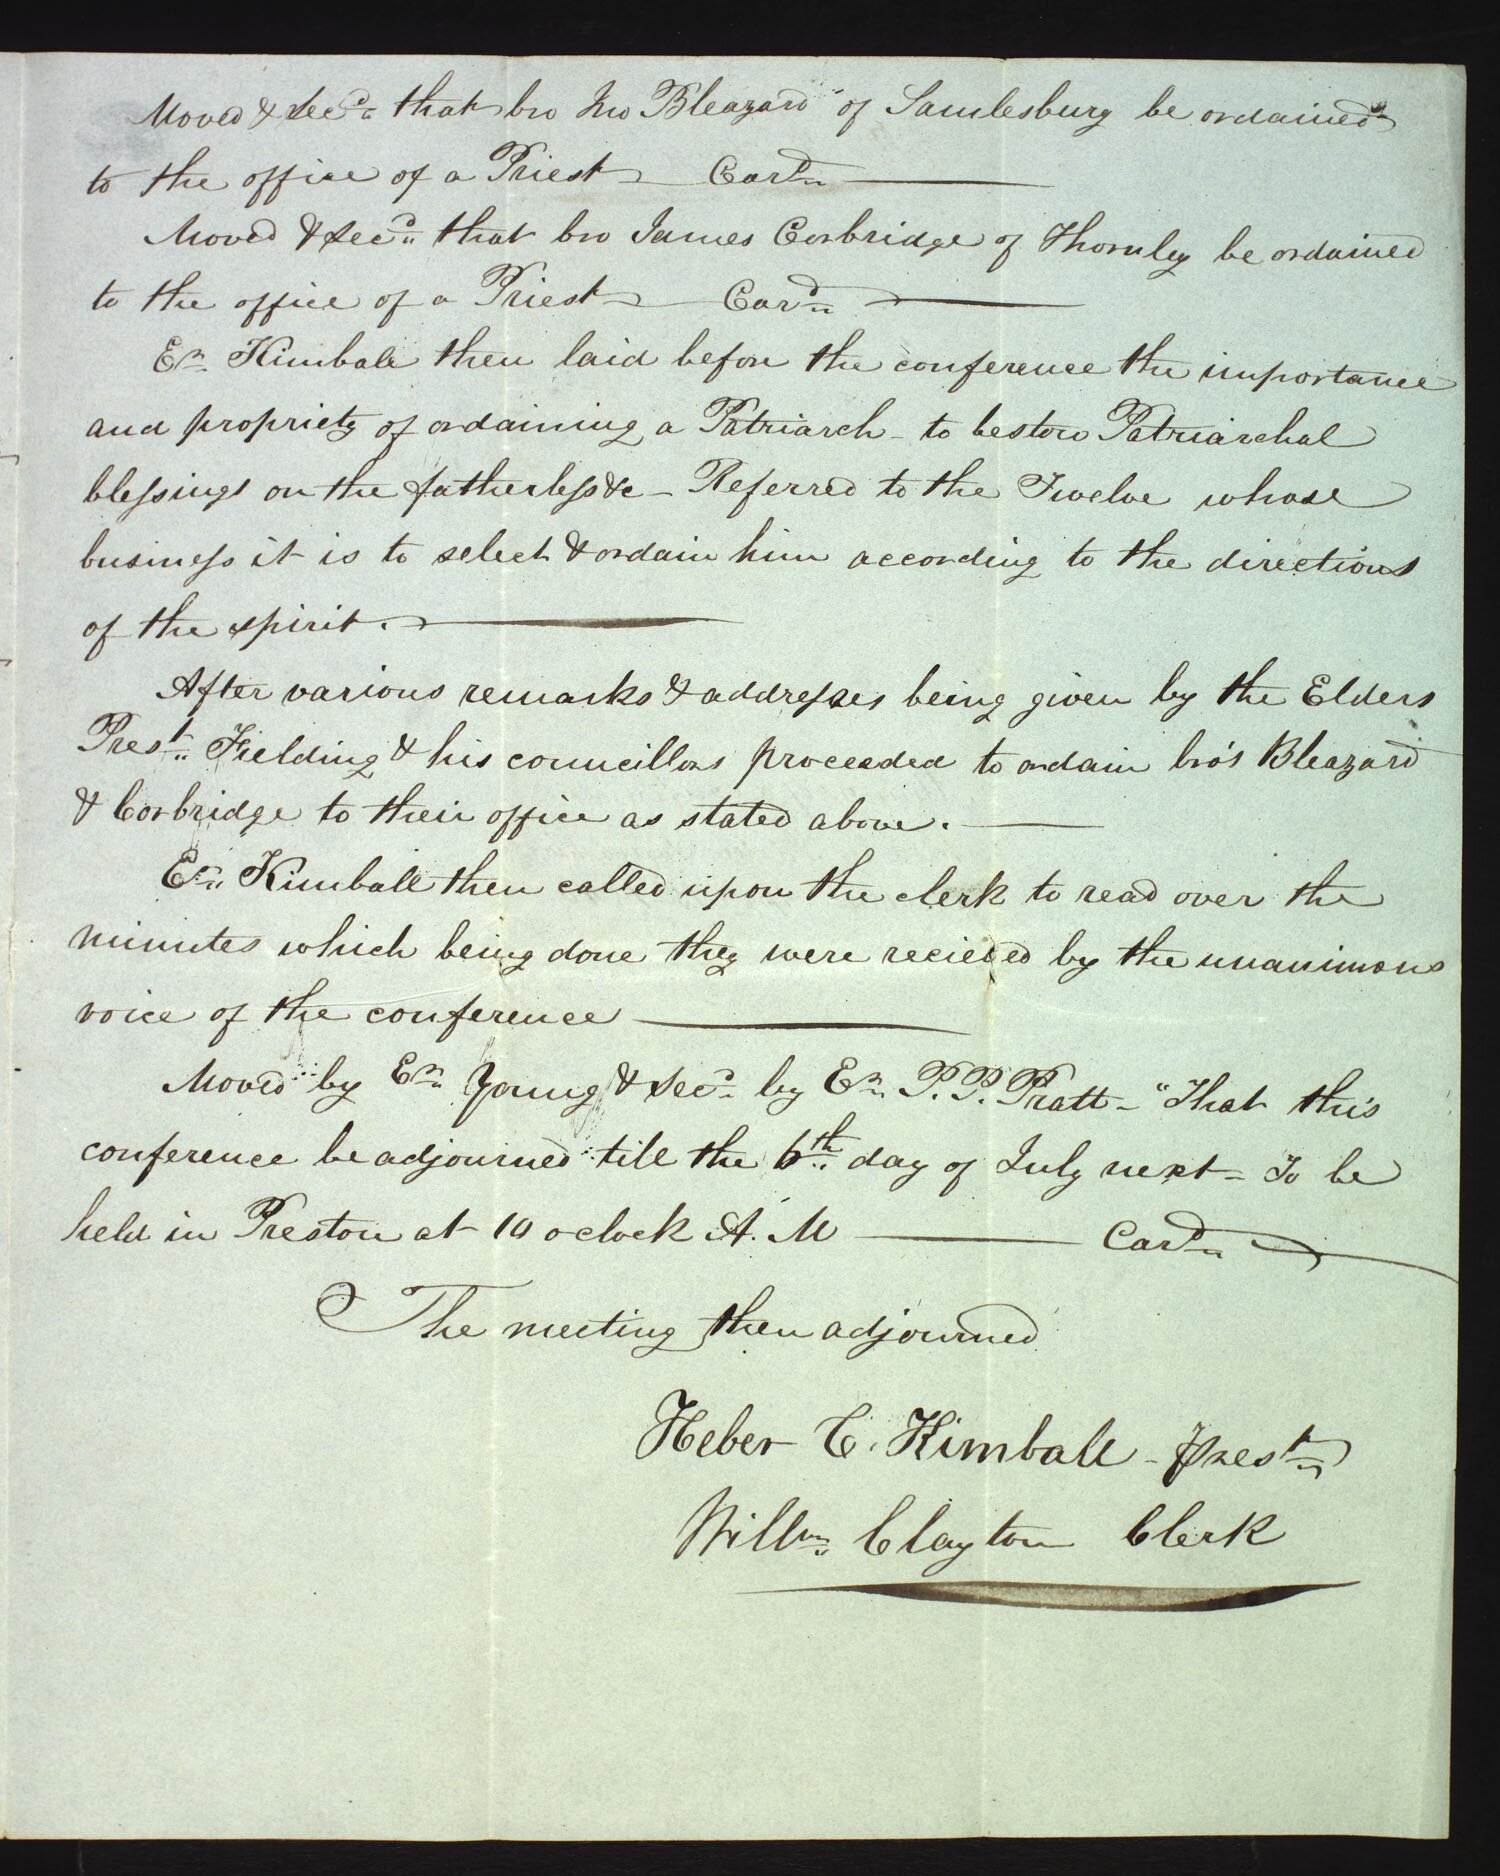 Moved & Sec.d that bro Jno Bleazard of Samlesburg be ordained
to the office of a Priest — Card —
Moved & Sec.d that bro James Corbridge of Thornley be ordained
to the office of a Priest — Card —
Er. Kimball then laid before the conference the importance
and propriety of ordaining a Patriarch – to bestow Patriarchal
blessings on the fatherless &c – Referred to the Twelve whose
business it is to select & ordain him according to the directions
of the spirit. —
After various remarks & addresses being given by the Elders
Prest. Fielding & his councillors proceeded to ordain bro's Bleazard
& Corbridge to their office as stated above. —
Er. Kimball then called upon the clerk to read over the
minutes which being done they were recieved by the unanimous
voice of the conference —
Moved by Er. Young & Sec.d by Er. P. P. Pratt – "That this
conference be adjourned till the 6th day of July next – To be
held in Preston at 10 o clock A. M — Card —
The meeting then adjourned
Heber C. Kimball – Prest.
Willm. Clayton Clerk